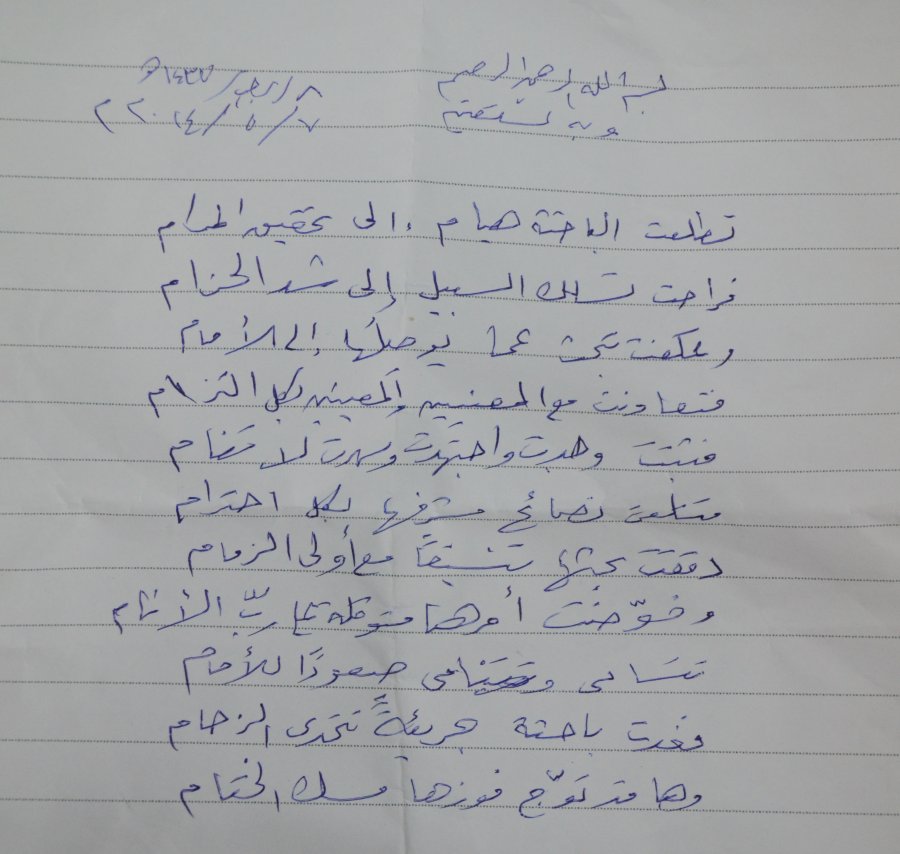 بسم الله الرحمن الرحيم
وبه نستفتح
٨/رجب/١٤٣٧هـ
٧/٥/٢٠١٤م
تطلعت الباحثة هيام، إلى تحقيق المرام
فراحت تسلك السبيل إلى شد الحزام
وعكفت تبحث عما يوصلها إلى الأمام
فتعاونت مع المعنيين والمعينين بكل التزام
فثبتت وجدت واجتهدت وسهرت لا تنام
فتلقت نصائح مشرفها بكل احترام
دققت بحثها تنسيقًا مع أولى الزمام
وفوّضت أمرها متوكلة على ربّ الأنام
تتسامى وتتنامى صعودًا للأمام
فغدت باحثة جريئةً تتحدى الزحام
وها قد توّج فوزها مسك الختام